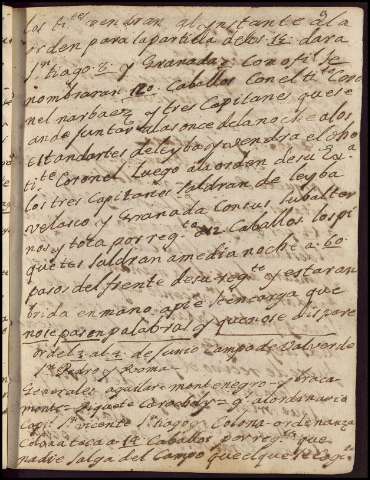 los ti.tes vendran al instante a la
orden para la partida de los 12. dara
S.n tiago 2. y Granada 2. Con ofi.l Se
nombraran 120. Caballos Con el ti.te Coro
nel narbaez y tres Capitanes que se
an de juntar a las once de la noche a los
estandartes de leyba y vendra el dho
ti.te Coronel luego a la orden de su Ex.a
los tres Capitanes Saldran de leyba
velasco y Granada Con sus Subalter
nos y tota por reg.to a 12 Caballos los pi
quetes Saldran a media noche a 60
pasos del frente de su reg.to y estaran
brida en mano, a pie se encarga que
no se pase palabra y que no se dispare
orden 3 al 4 de junio Campo de valverde
S.n Pedro y Roma
Generales aguilar montenegro y braca
monte Piquete Cordoba
Capi.n S.n vicente S.n tiago Colona ordenanza
Colona toca a 14 Caballos por reg.to que
nadie salga del Campo